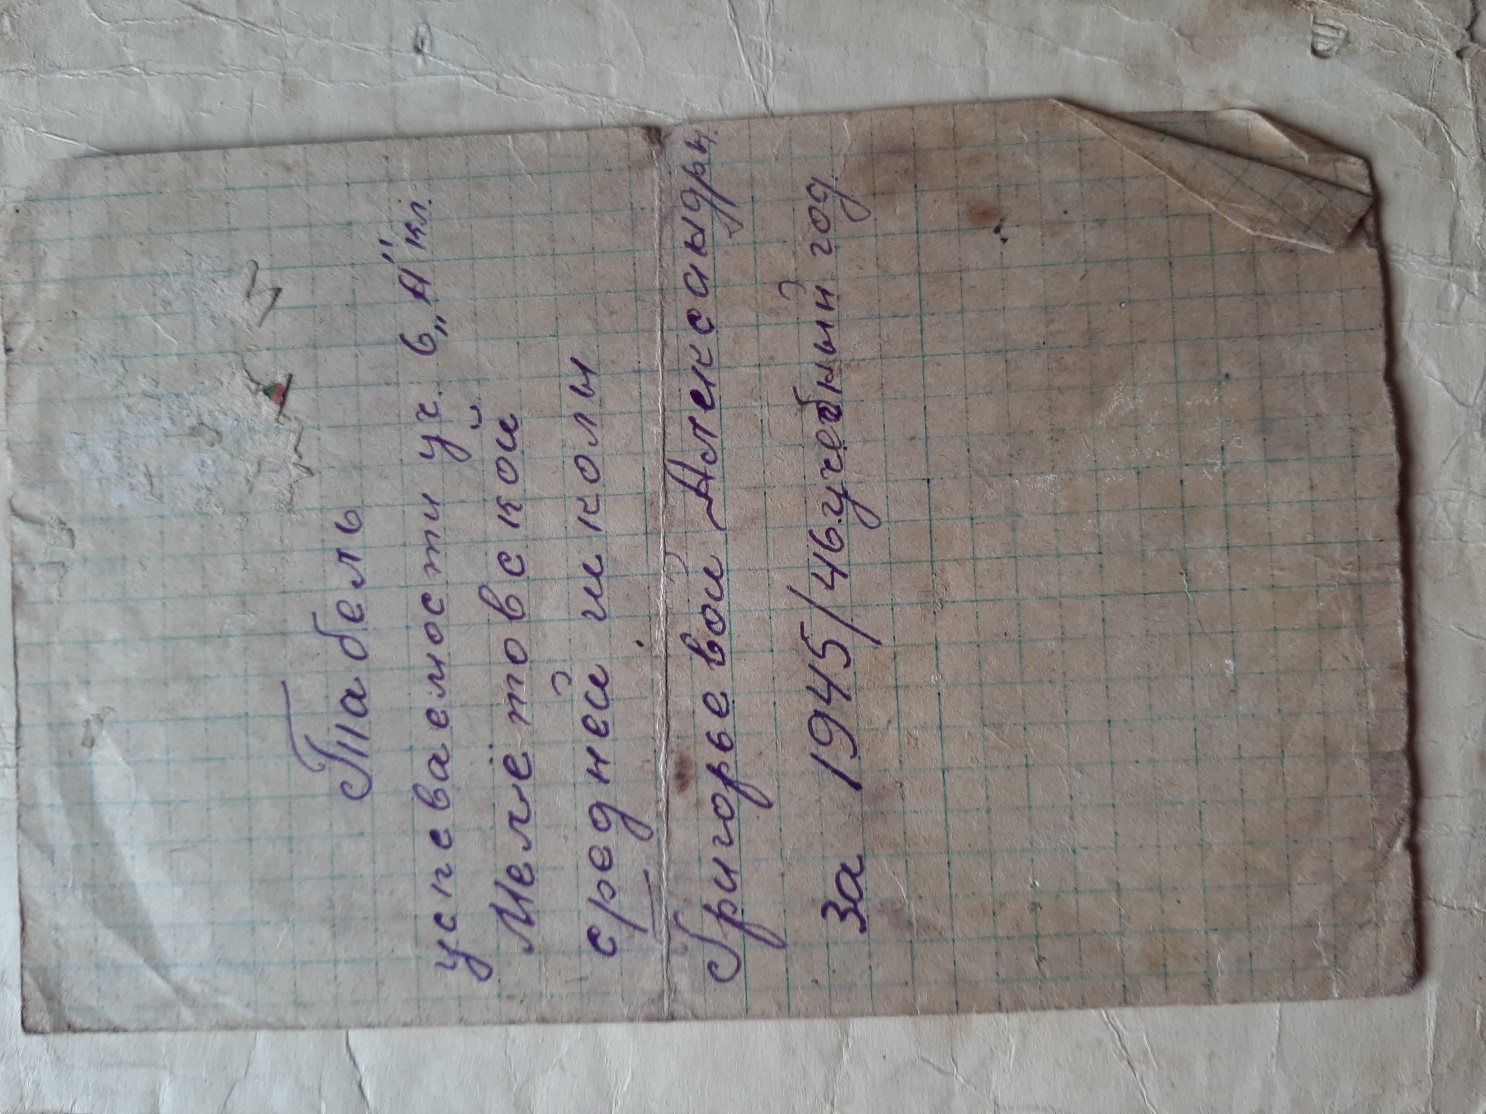 Табель
успеваемости уч. 6 „А" кл.
Мелётовской
средней школы
Григорьевой Александры.
За 1945/46 учебный год.